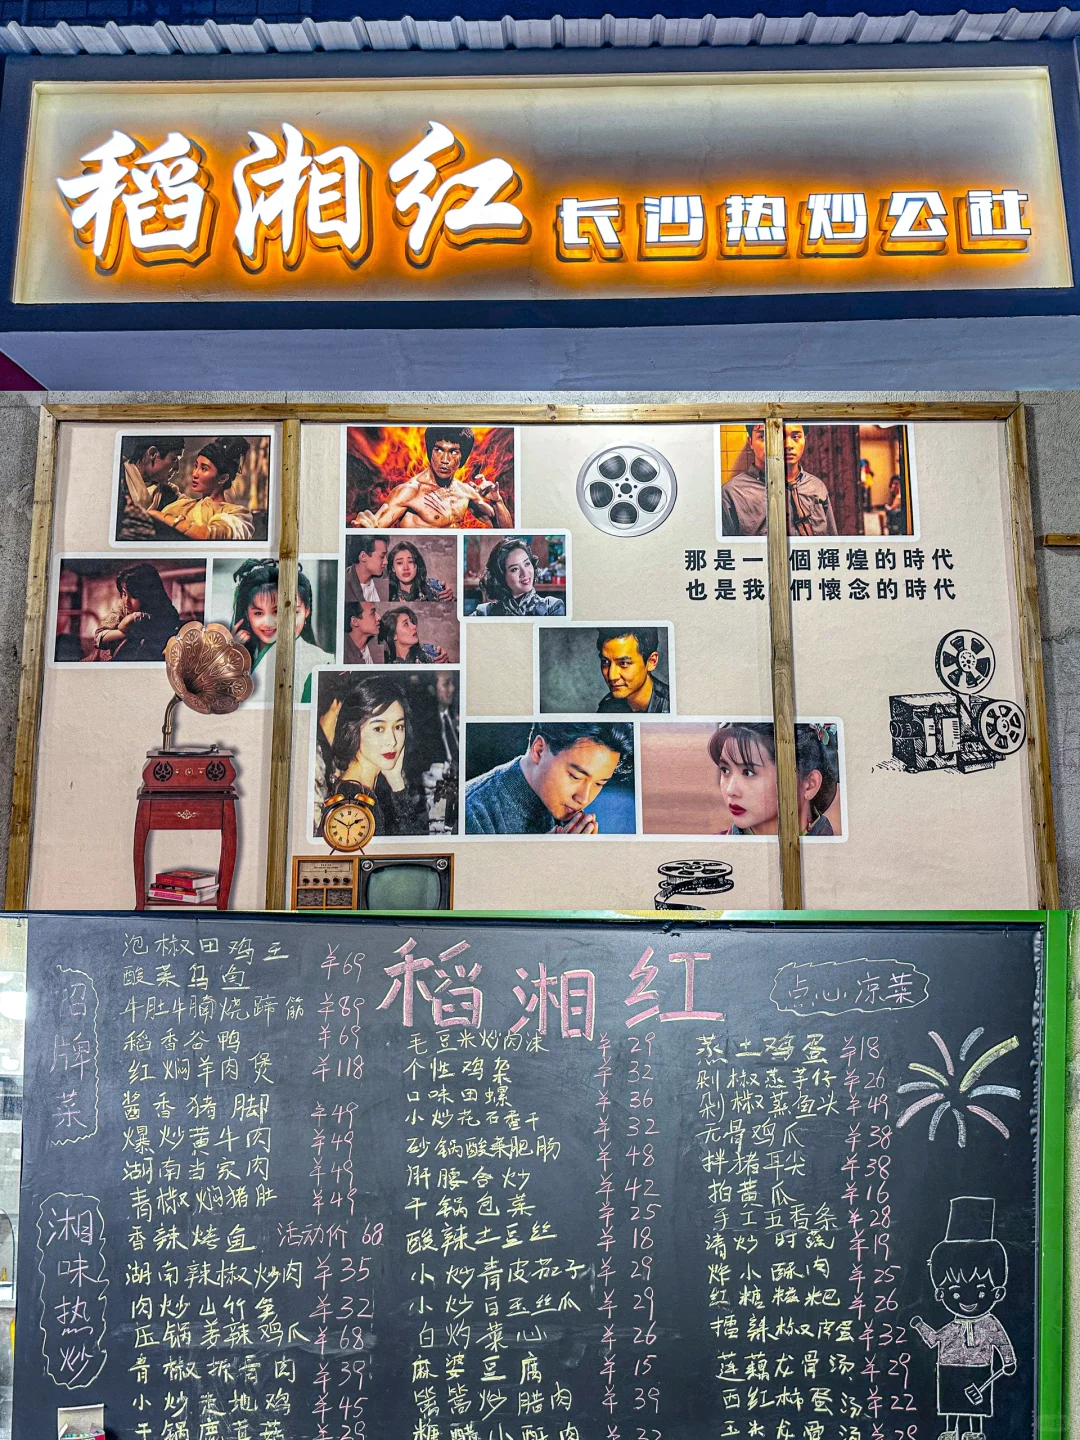 稻湘红 长沙热炒公社
那是一個輝煌的時代
也是我們懷念的時代
稻湘红
点心凉菜
招牌菜
泡椒田鸡王
酸菜乌鱼 ¥69
牛肚牛腩烧蹄筋 ¥89
稻香谷鸭 ¥69
红焖羊肉煲 ¥118
酱香猪脚 ¥49
爆炒黄牛肉 ¥49
湖南当家肉 ¥49
青椒焖猪肚 ¥49
湘味热炒
香辣烤鱼 活动价 68
湖南辣椒炒肉 ¥35
肉炒山竹笋 ¥32
压锅姜辣鸡爪 ¥68
青椒拆骨肉 ¥39
小炒走地鸡 ¥45
干锅鹿茸菇 ¥29
毛豆米炒肉沫 ¥29
个性鸡杂 ¥32
口味田螺 ¥36
小炒花石香干 ¥32
砂锅酸菜肥肠 ¥48
肝腰合炒 ¥42
干锅包菜 ¥25
酸辣土豆丝 ¥18
小炒青皮茄子 ¥29
小炒白玉丝瓜 ¥29
白灼菜心 ¥26
麻婆豆腐 ¥15
炒腊肉 ¥39
糖醋小酥肉
蒸土鸡蛋 ¥18
剁椒蒸芋仔 ¥26
剁椒蒸鱼头 ¥49
无骨鸡爪 ¥38
拌猪耳尖 ¥38
拍黄瓜 ¥16
手工五香条 ¥28
清炒时蔬 ¥19
炸小酥肉 ¥25
红糖糍粑 ¥26
擂辣椒皮蛋 ¥32
莲藕龙骨汤 ¥29
西红柿蛋汤 ¥22
玉米龙骨汤 ¥28